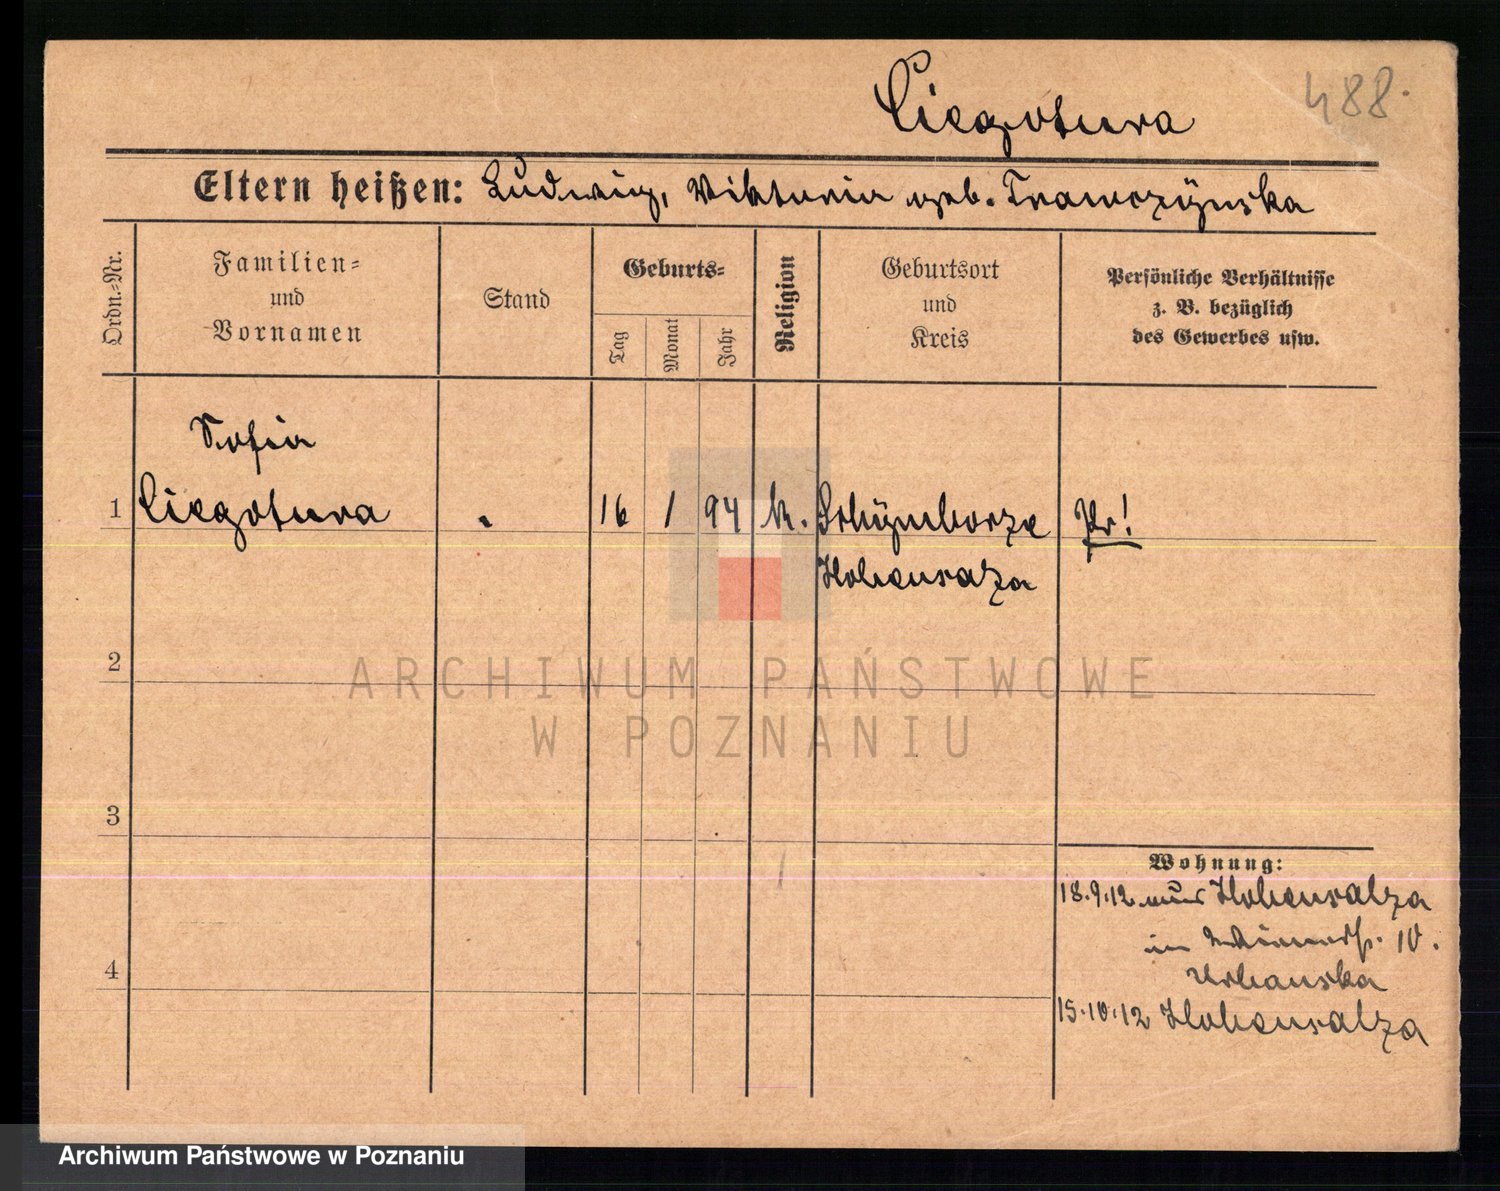 Ciegotura
488.
Eltern heißen: Ludwig, Viktoria geb. Trawczynska
Ordn.-Nr.
Familien-
und
Vornamen
Stand
Geburts-
Tag
Monat
Jahr
Religion
Geburtsort
und
Kreis
Persönliche Verhältnisse
z. B. bezüglich
des Gewerbes usw.
Sofia
1 Ciegotura 16 1 94 k. Schymborze Pr!
Hohensalza
ARCHIWUM PAŃSTWOWE
W POZNANIU
2
3
4
Wohnung:
18.9.12 aus Hohensalza
in 10.
Urbanska
15.10.12 Hohensalza
Archiwum Państwowe w Poznaniu